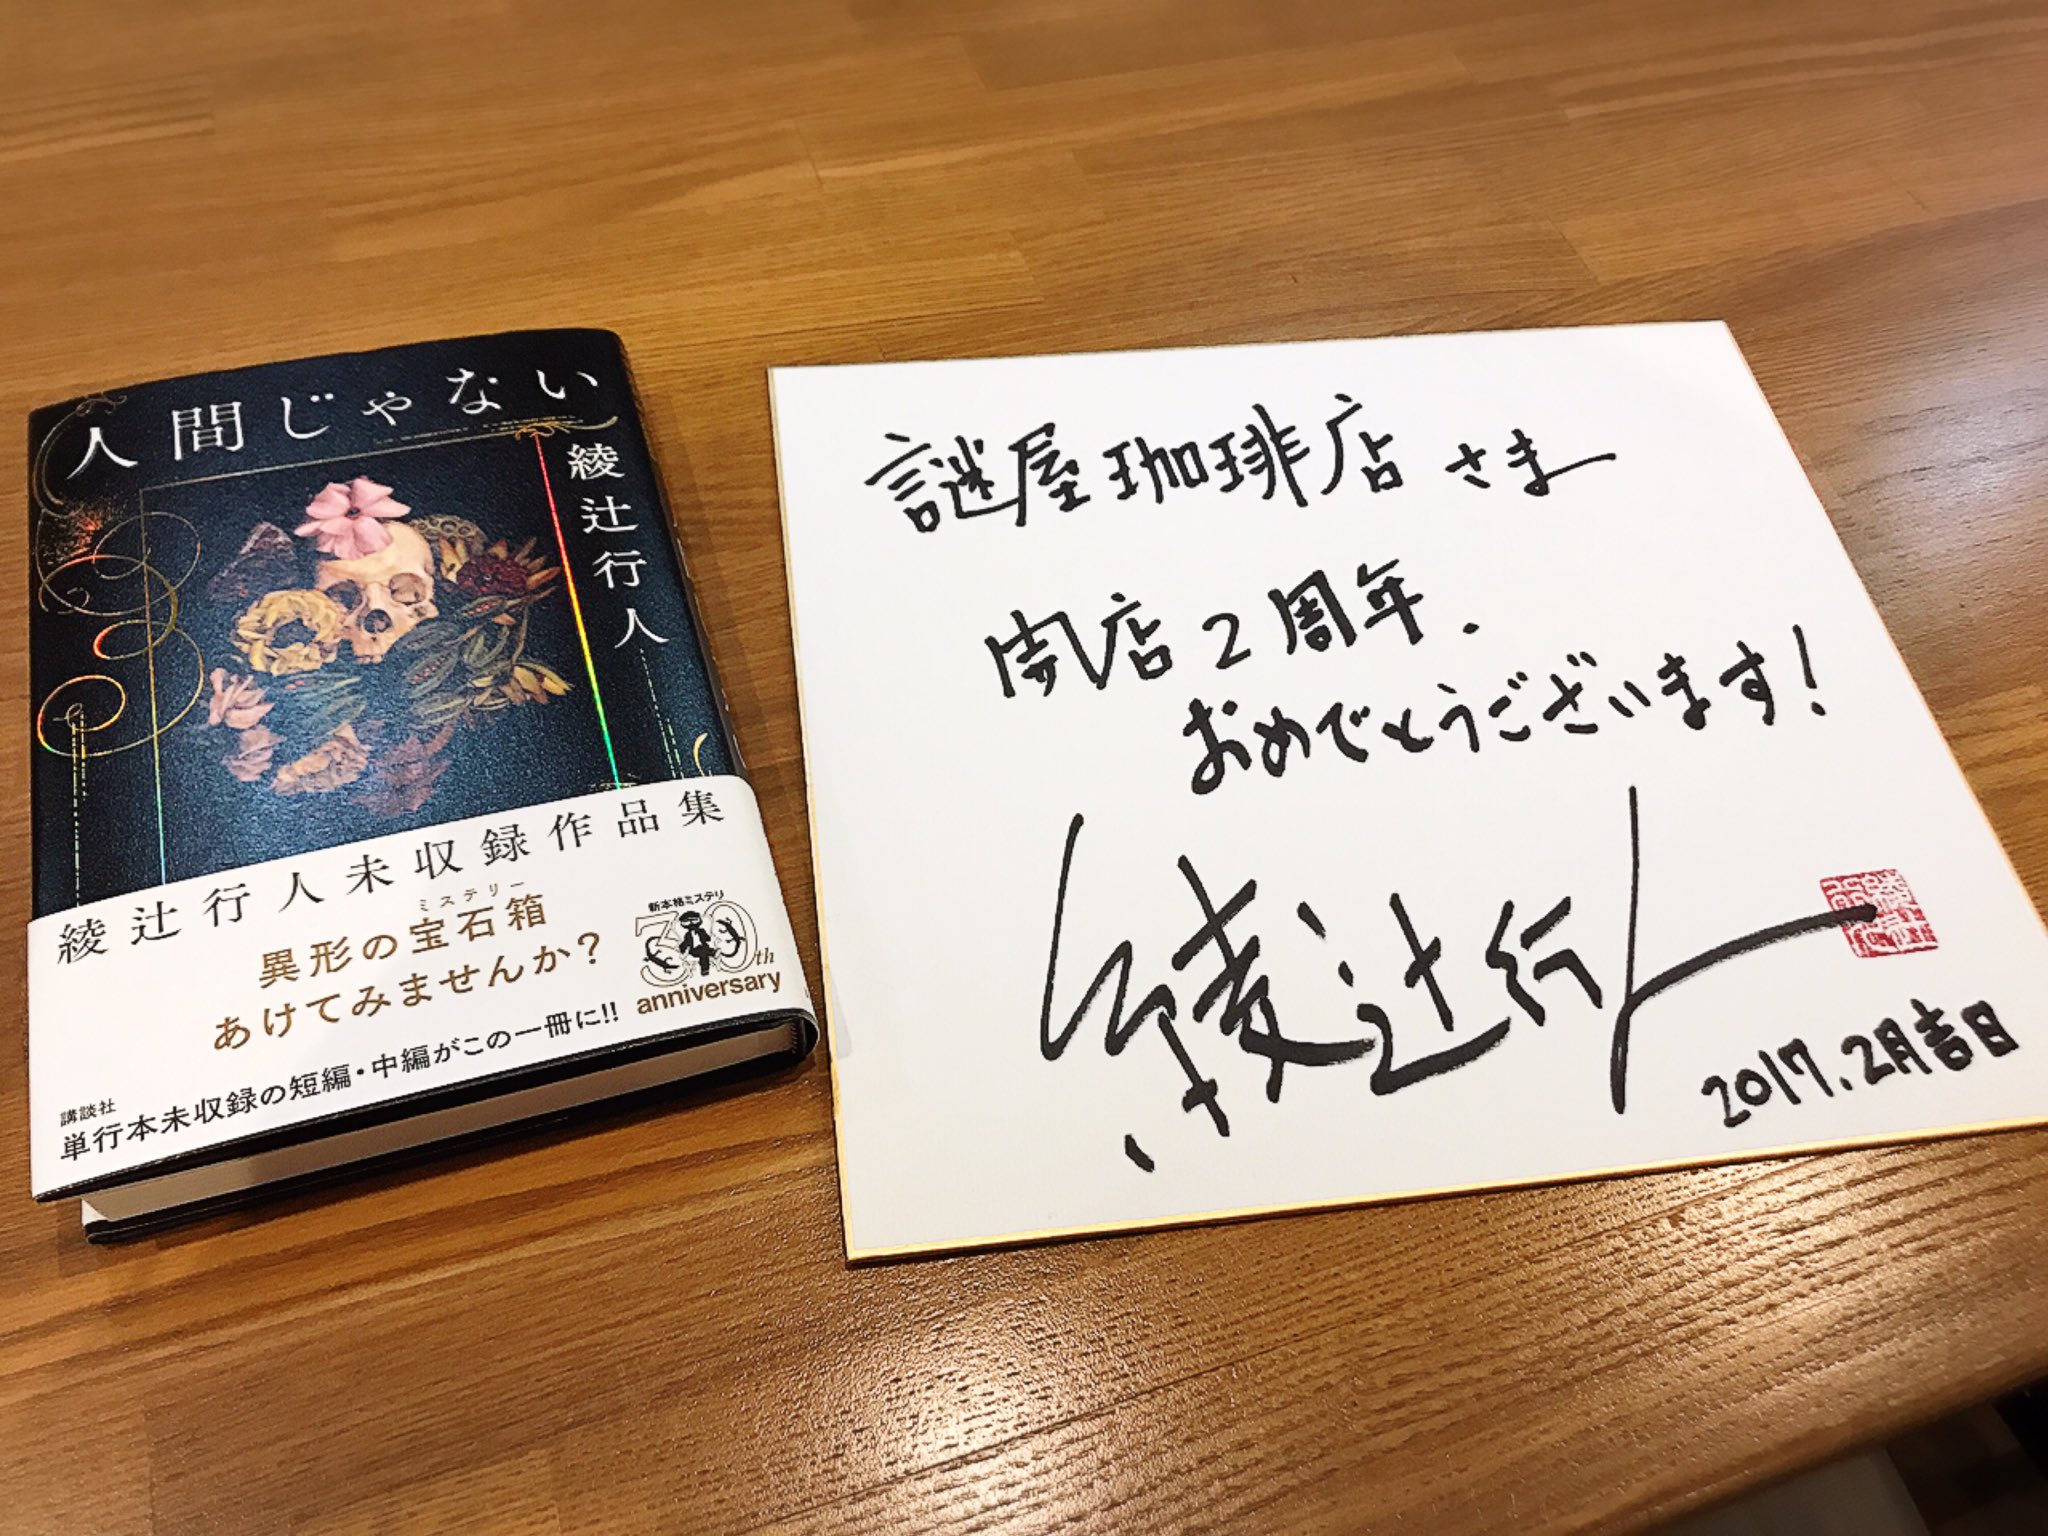 人間じゃない
綾辻行人
綾辻行人未収録作品集
ミステリー
異形の宝石箱
あけてみませんか?
新本格ミステリ
30th
anniversary
講談社
単行本未収録の短編・中編がこの一冊に!!
謎屋珈琲店 さま
開店2周年、
おめでとうございます!
綾辻行人
2017.2月吉日